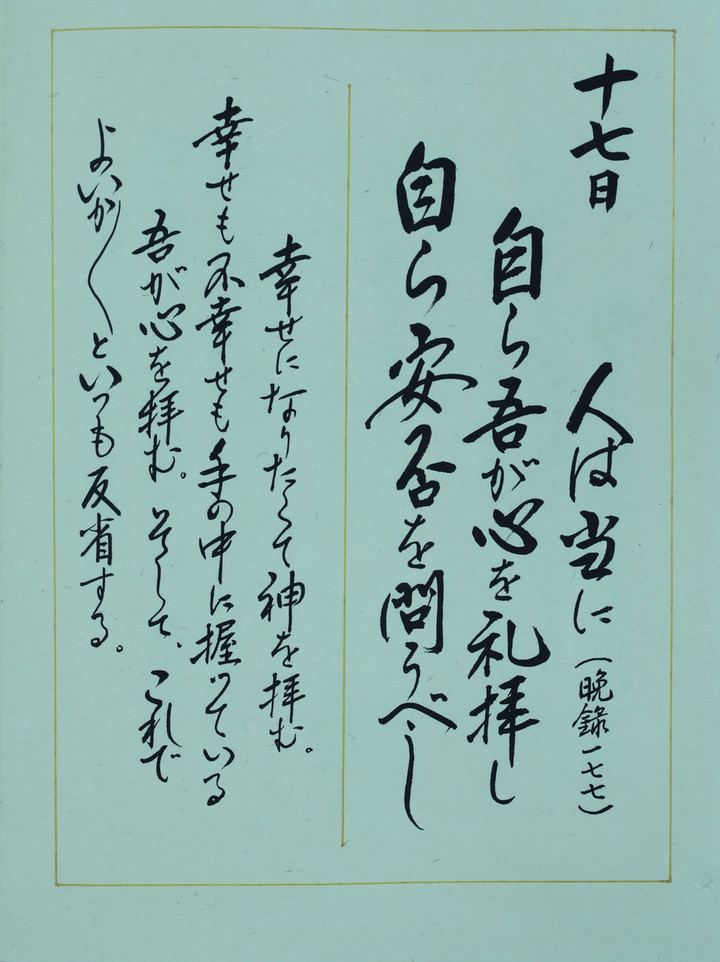 十七日
人は当に（晩録一七七）
自ら吾が心を礼拝し
自ら安否を問うべし
幸せになりたくて神を拝む。
幸せも不幸せも手の中に握っている
吾が心を拝む。そして、これで
よいか〱といつも反省する。